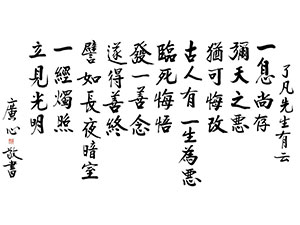 了凡先生有云
一息尚存
彌天之惡
猶可悔改
古人有一生為惡
臨死悔悟
發一善念
遂得善終
譬如長夜暗室
一經燭照
立見光明
廣心敬書